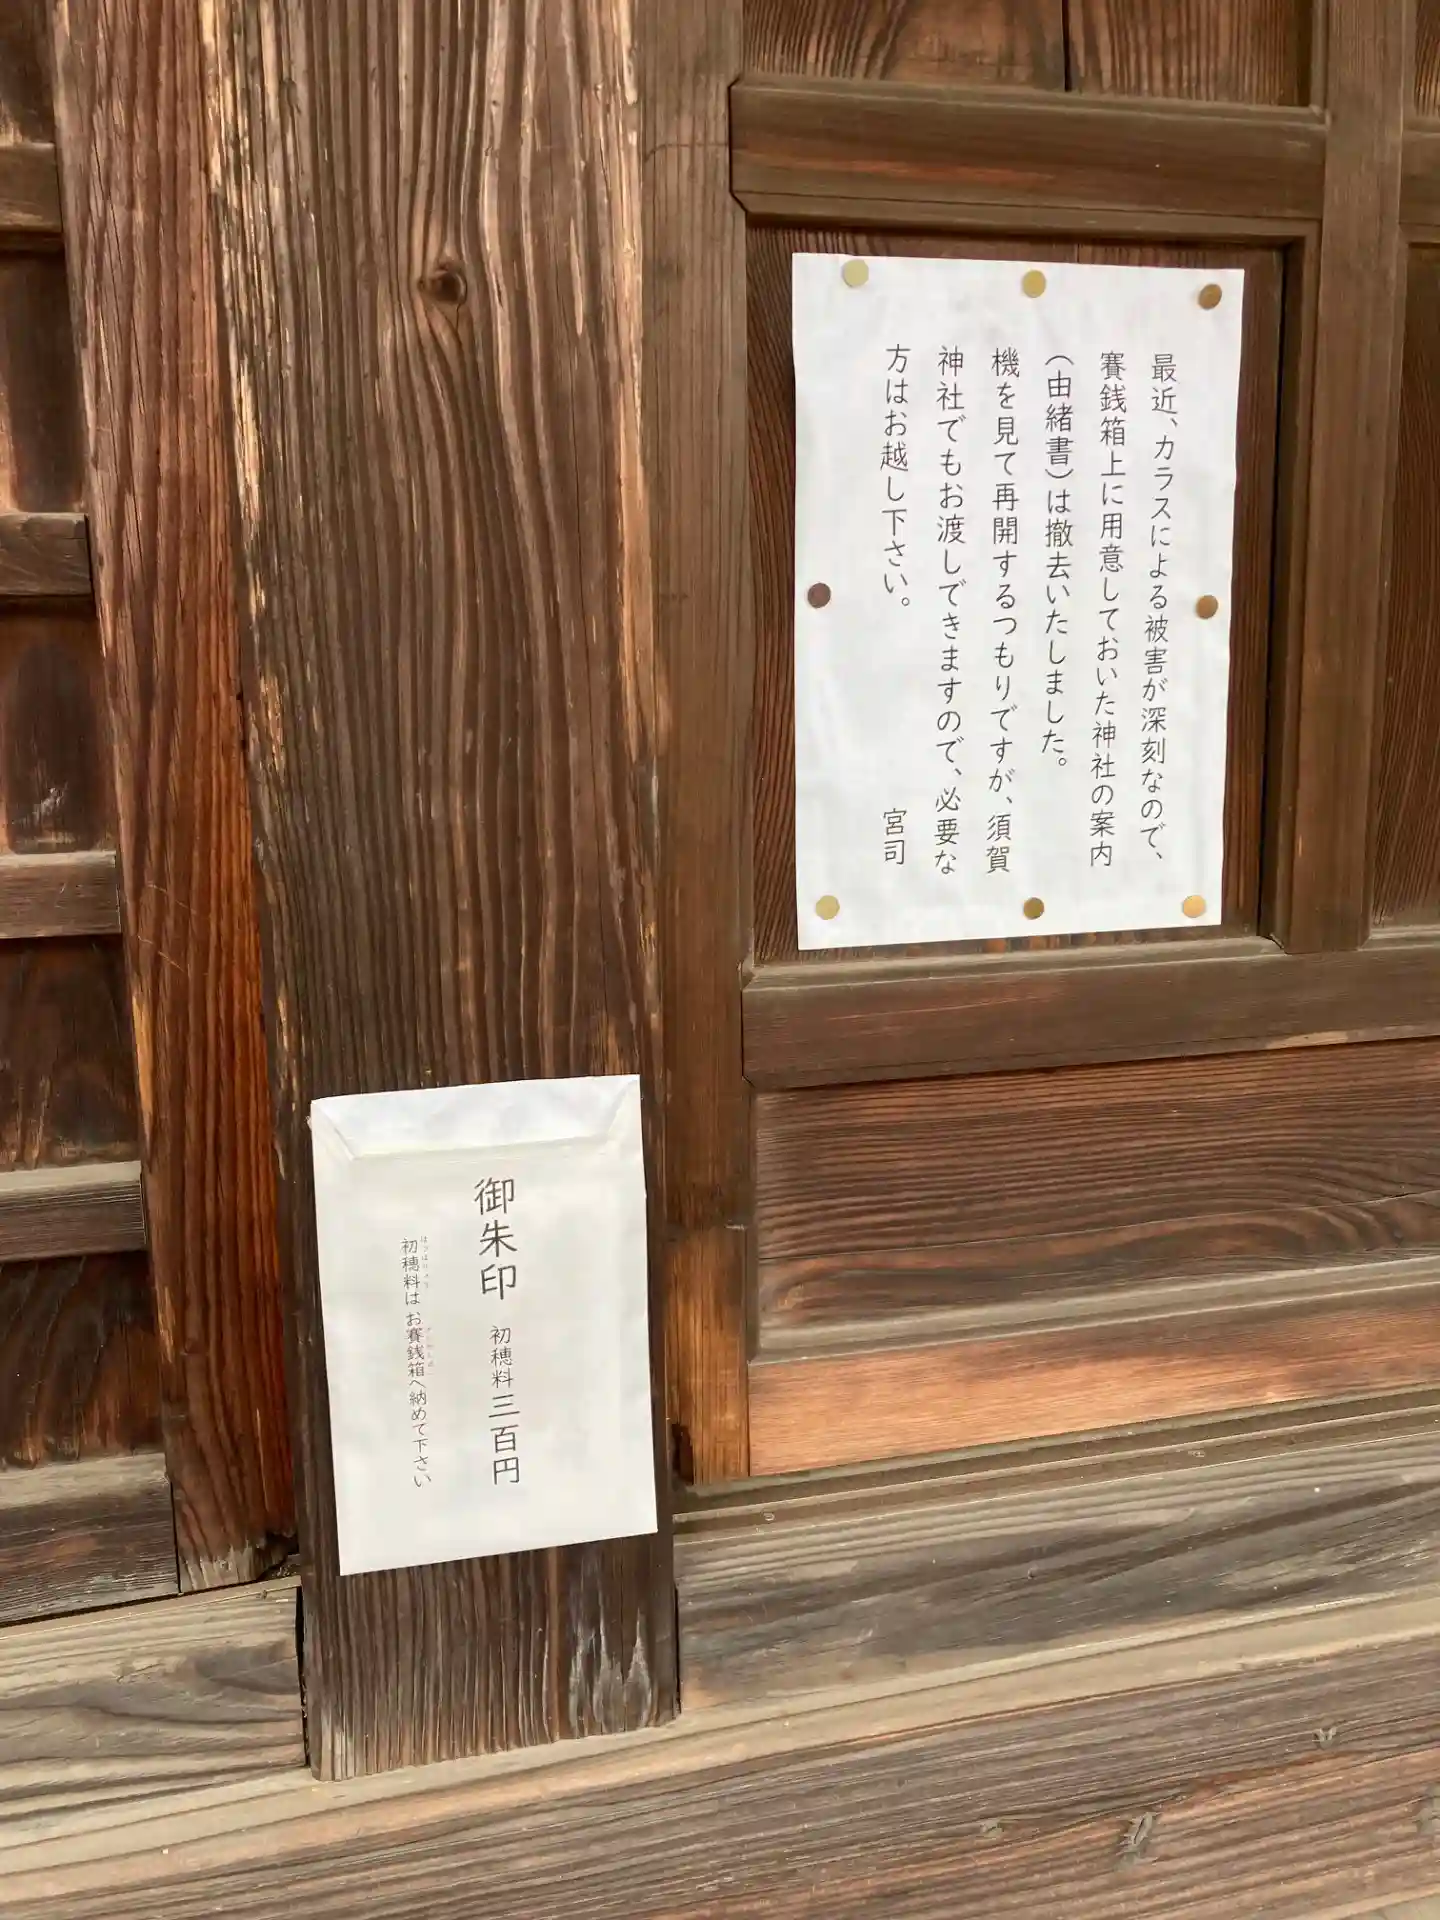 最近、カラスによる被害が深刻なので、
賽銭箱上に用意しておいた神社の案内
（由緒書）は撤去いたしました。
機を見て再開するつもりですが、須賀
神社でもお渡しできますので、必要な
方はお越し下さい。
宮司
御朱印 初穂料三百円
初穂料はお賽銭箱へ納めて下さい
はつほりょう